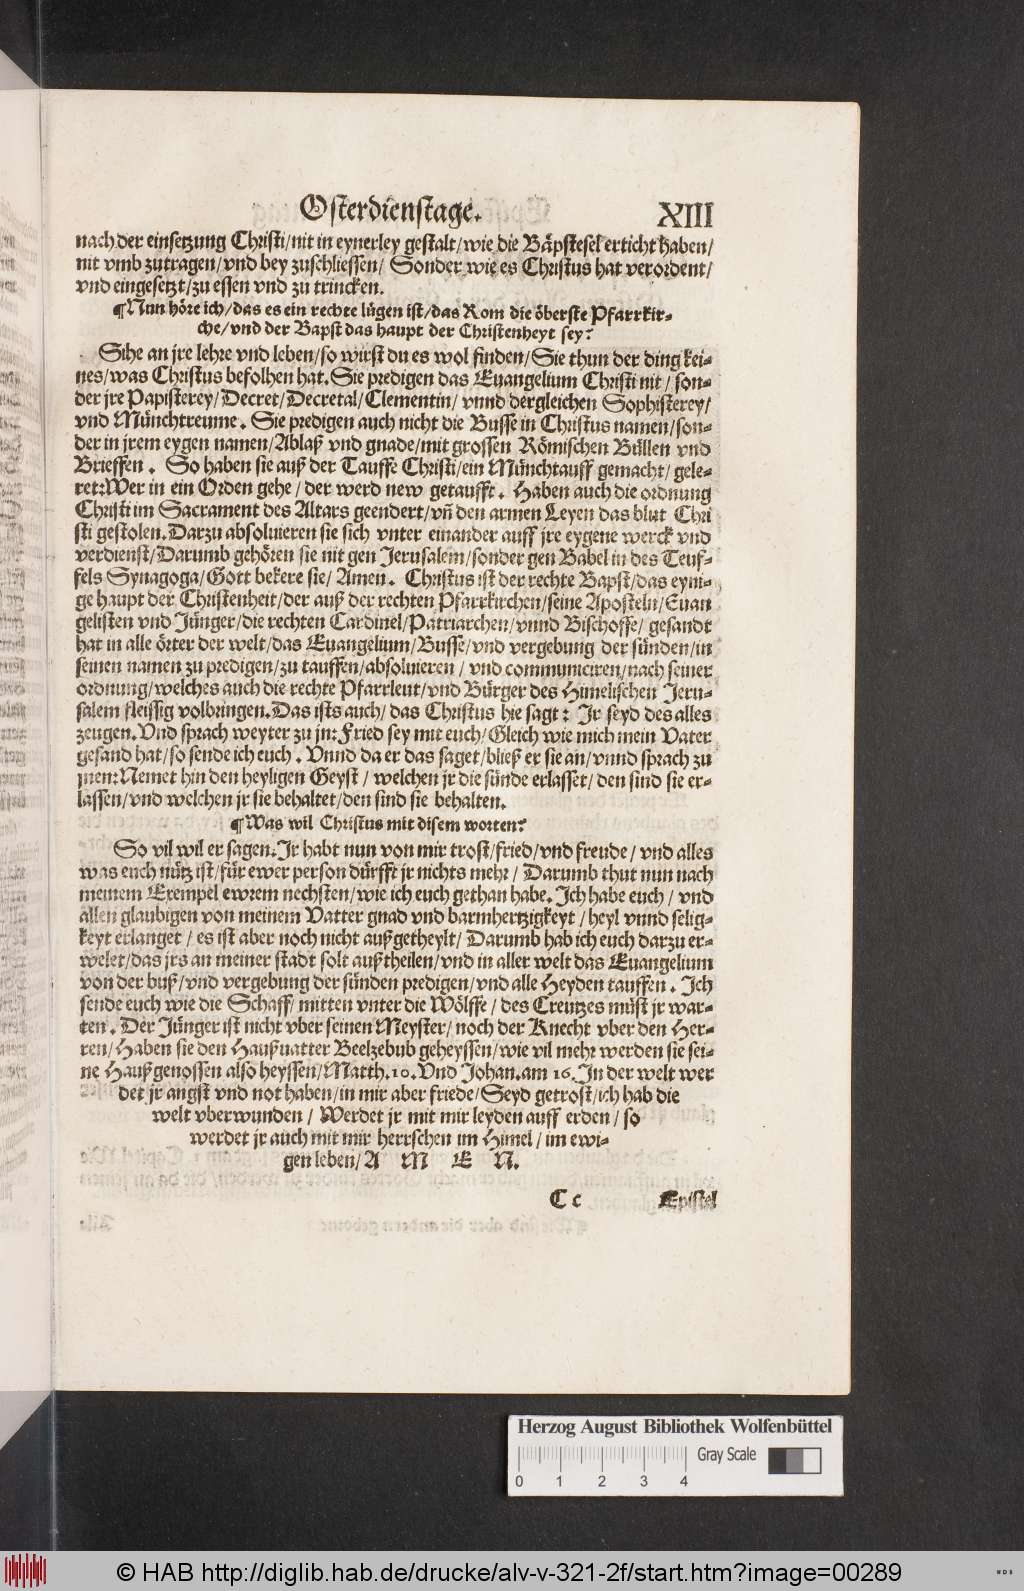 Osterdienstage. XIII
nach der einsetzung Christi/nit in eynerley gestalt/wie die Bäpstesel erticht haben/
nit vmb zutragen/vnd bey zuschliessen/ Sonder wie es Christus hat verordent/
vnd eingesetzt/zu essen vnd zu trincken.
¶Nun höre ich/das es ein rechte lügen ist/das Rom die öberste Pfarrkir-
che/vnd der Bapst das haupt der Christenheyt sey?
Sihe an jre lehre vnd leben/so wirst du es wol finden/Sie thun der ding kei-
nes/was Christus befolhen hat. Sie predigen das Euangelium Christi nit/ son-
der jre Papisterey/Decret/Decretal/Clementin/ vnnd dergleichen Sophisterey/
vnd Münchtreume. Sie predigen auch nicht die Busse in Christus namen/son-
der in jrem eygen namen/Ablaß vnd gnade/mit grossen Römischen Büllen vnd
Brieffen. So haben sie auß der Tauffe Christi/ein Münchtauff gemacht/gele-
ret:Wer in ein Orden gehe/der werd new getaufft. Haben auch die ordnung
Christi im Sacrament des Altars geendert/vñ den armen Leyen das blut Chri
sti gestolen.Darzu absoluieren sie sich vnter einander auff jre eygene werck vnd
verdienst/Darumb gehören sie nit gen Jerusalem/sonder gen Babel in des Teuf-
fels Synagoga/Gott bekere sie/Amen. Christus ist der rechte Bapst/das eyni-
ge haupt der Christenheit/der auß der rechten Pfarrkirchen/seine Aposteln/Euan
gelisten vnd Jünger/die rechten Cardinel/Patriarchen/vnnd Bischoffe/ gesandt
hat in alle örter der welt/das Euangelium/Busse/vnd vergebung der sünden/in
seinen namen zu predigen/zu tauffen/absoluieren/ vnd communiciren/nach seiner
ordnung/welches auch die rechte Pfarrleut/vnd Bürger des Himelischen Jeru-
salem fleissig volbringen.Das ists auch/das Christus hie sagt: Jr seyd des alles
zeugen.Vnd sprach weyter zu jn:Fried sey mit euch/Gleich wie mich mein Vater
gesand hat/so sende ich euch. Vnnd da er das saget/bließ er sie an/vnnd sprach zu
jnen:Nemet hin den heyligen Geyst/ welchen jr die sünde erlasset/den sind sie er-
lassen/vnd welchen jr sie behaltet/den sind sie behalten.
¶Was wil Christus mit disem worten?
So vil wil er sagen.Jr habt nun von mir trost/fried/vnd freude/ vnd alles
was euch nütz ist/für ewer person dürfft jr nichts mehr/ Darumb thut nun nach
meinem Exempel ewrem nechsten/wie ich euch gethan habe. Ich habe euch/ vnd
allen glaubigen von meinem Vatter gnad vnd barmhertzigkeyt/heyl vnnd selig-
keyt erlanget/ es ist aber noch nicht außgetheylt/Darumb hab ich euch darzu er-
welet/das jrs an meiner stadt solt außtheilen/vnd in aller welt das Euangelium
von der buß/vnd vergebung der sünden predigen/vnd alle Heyden tauffen. Ich
sende euch wie die Schaff/mitten vnter die Wölffe/ des Creutzes müst jr war-
ten. Der Jünger ist nicht vber seinen Meyster/noch der Knecht vber den Her-
ren/Haben sie den Haußuatter Beelzebub geheyssen/wie vil mehr werden sie sei-
ne Haußgenossen also heyssen/Matth.10. Vnd Johan.am 16.In der welt wer
det jr angst vnd not haben/in mir aber friede/Seyd getrost/ich hab die
welt vberwunden/ Werdet jr mit mir leyden auff erden/so
werdet jr auch mit mir herrschen im Himel/im ewi-
gen leben/A M E N.
C c Epistel
Herzog August Bibliothek Wolfenbüttel
Gray Scale
0 1 2 3 4
© HAB http://diglib.hab.de/drucke/alv-v-321-2f/start.htm?image=00289